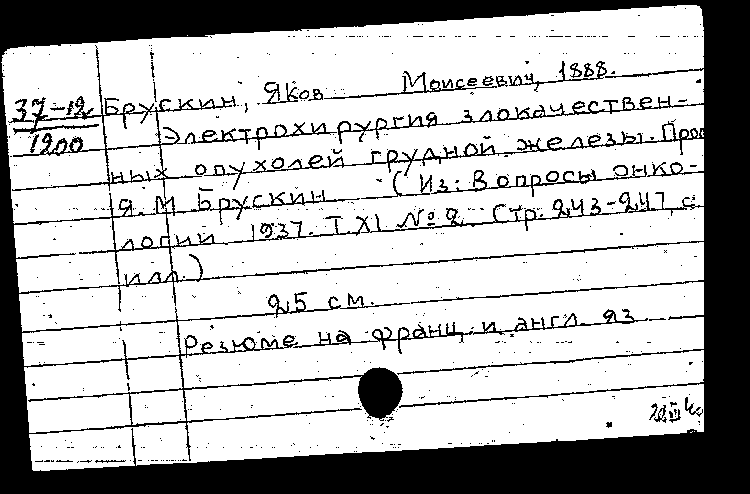 37-12
1200
Брускин, Яков Моисеевич, 1888.
Электрохирургия злокачествен-
ных опухолей грудной железы. Проф
Я. М Брускин (Из: Вопросы онко-
логии 1937. Т XI № 2. Стр. 243-247, с
илл.)
25 см.
Резюме на франц. и англ. яз